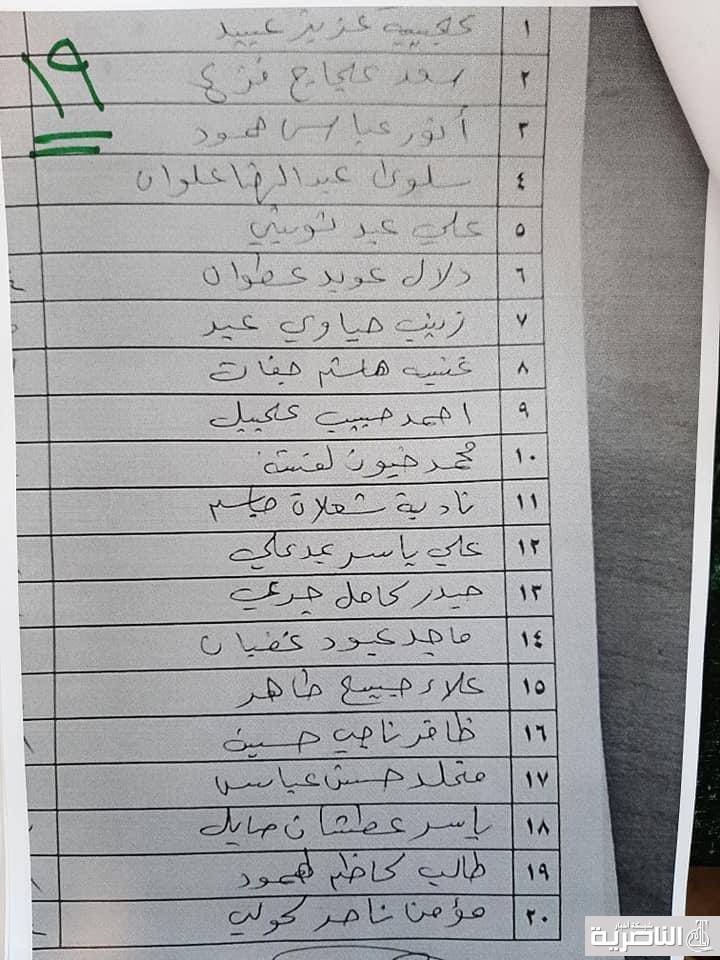 ١٩
١ عجيبة عزيز عبيد
٢ سعد علاج فزع
٣ أنور عباس حمود
٤ سلوى عبد الرضا علوان
٥ علي عبد شويتي
٦ دلال عويد عطوان
٧ زينب حياوي عبد
٨ غنيه هاشم
٩ احمد حبيب عجيل
١٠ محمد خيون لفتة
١١ نادية شعلان جاسم
١٢ علي ياسر عبد علي
١٣ حيدر كامل
١٤ ماجد عبود غضبان
١٥ علاء صبيح طاهر
١٦ ظافر ناجي حسين
١٧ حسن عباس
١٨ ياسر عطشان صايل
١٩ طالب كاظم حمود
٢٠ مؤمن ناصر
شبكة أخبار الناصرية